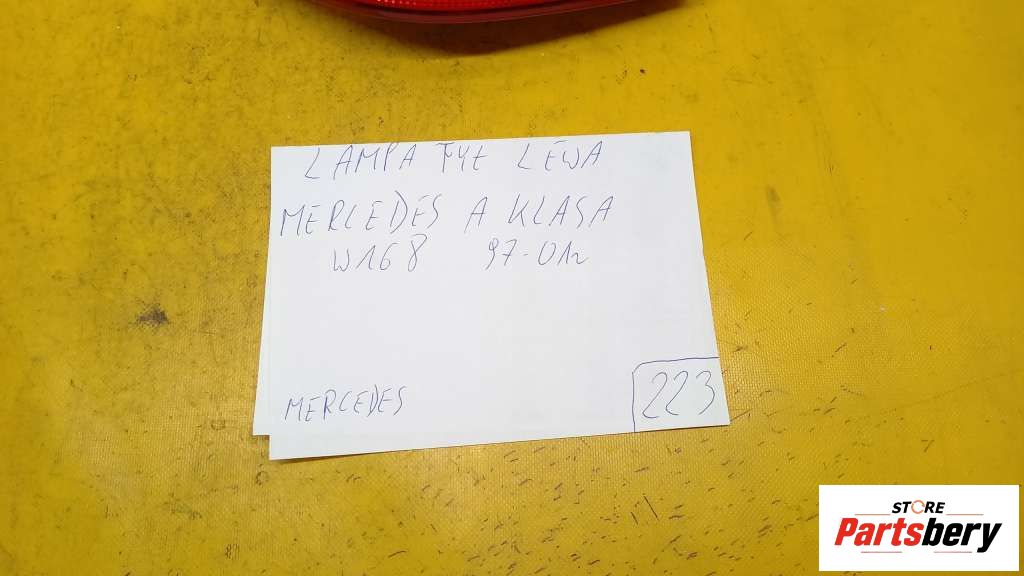 LAMPA TYŁ LEWA
MERCEDES A KLASA
W168 97-01r
MERCEDES
223
STORE
Partsbery